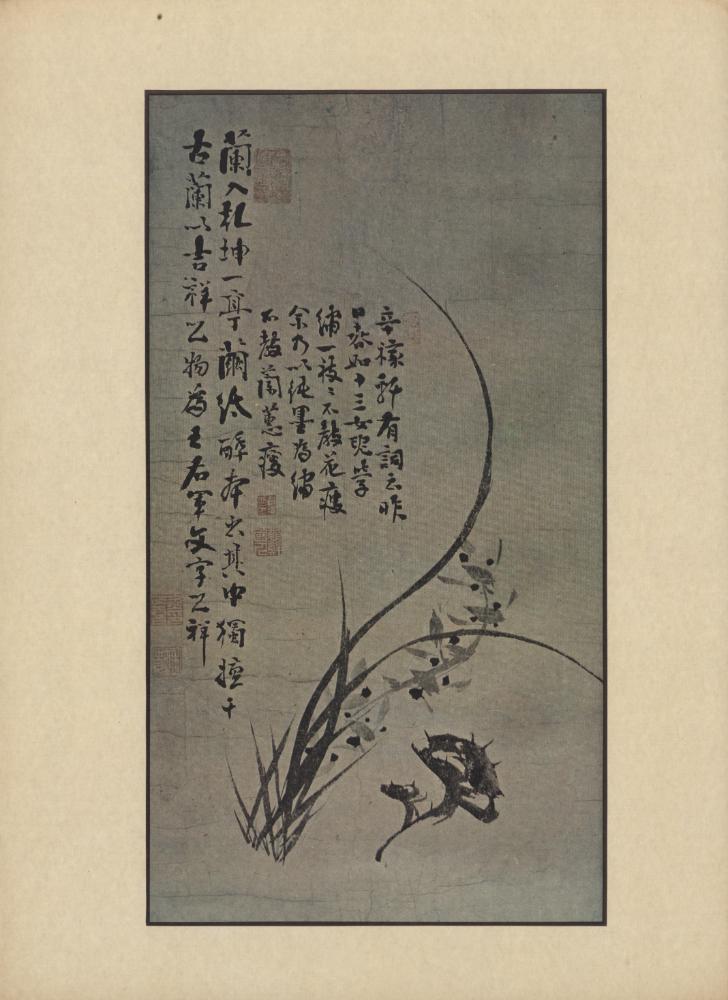 辛稼軒有詞云昨
日春如十三女兒學
繡一枝〻不教花瘦
余乃以純墨為繡
不教蘭蕙瘦
蘭入乾坤一亭繭紙醉本出其中獨擅千
古蘭以吉祥之物為王右軍文字之祥